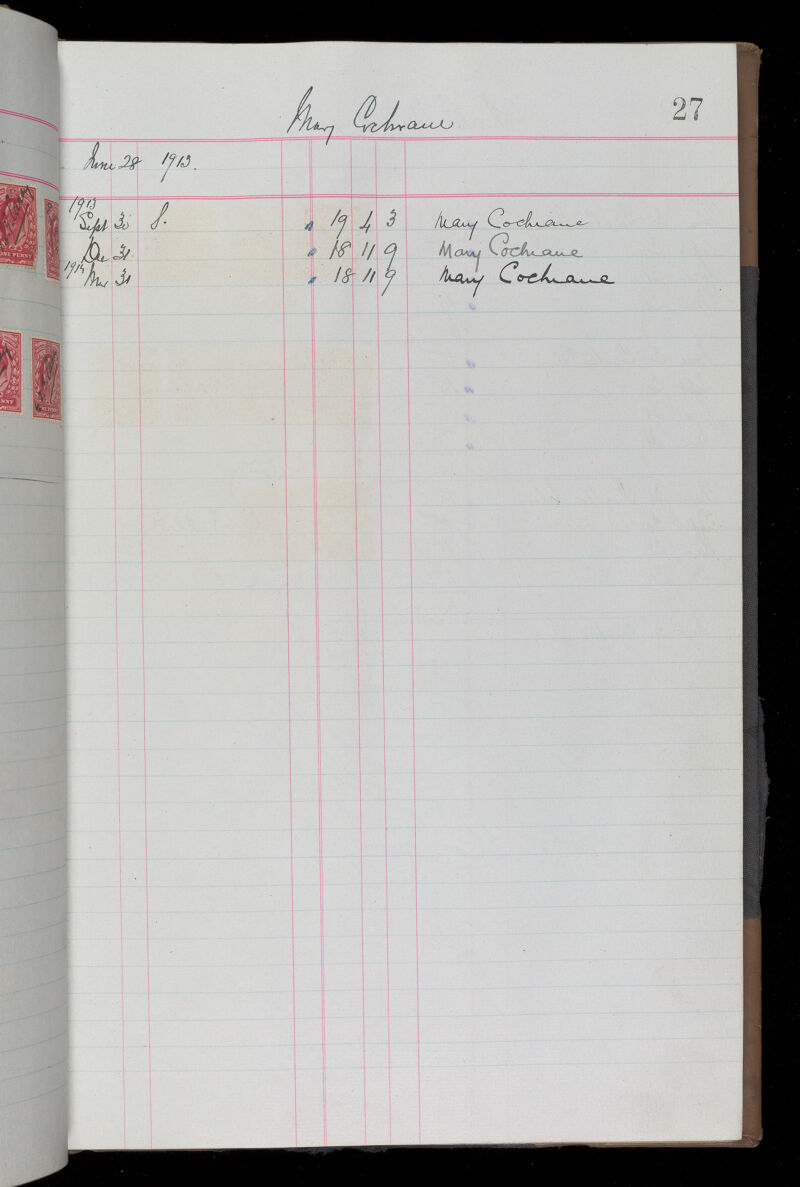 27
Mary Cochrane
June 28 1913.
1913
Sept 30 8. " 19 4 3 Mary Cochrane
Dec 31 " 18 11 9 Mary Cochrane
1914
Mar 31 " 18 11 9 Mary Cochrane
ONE PENNY